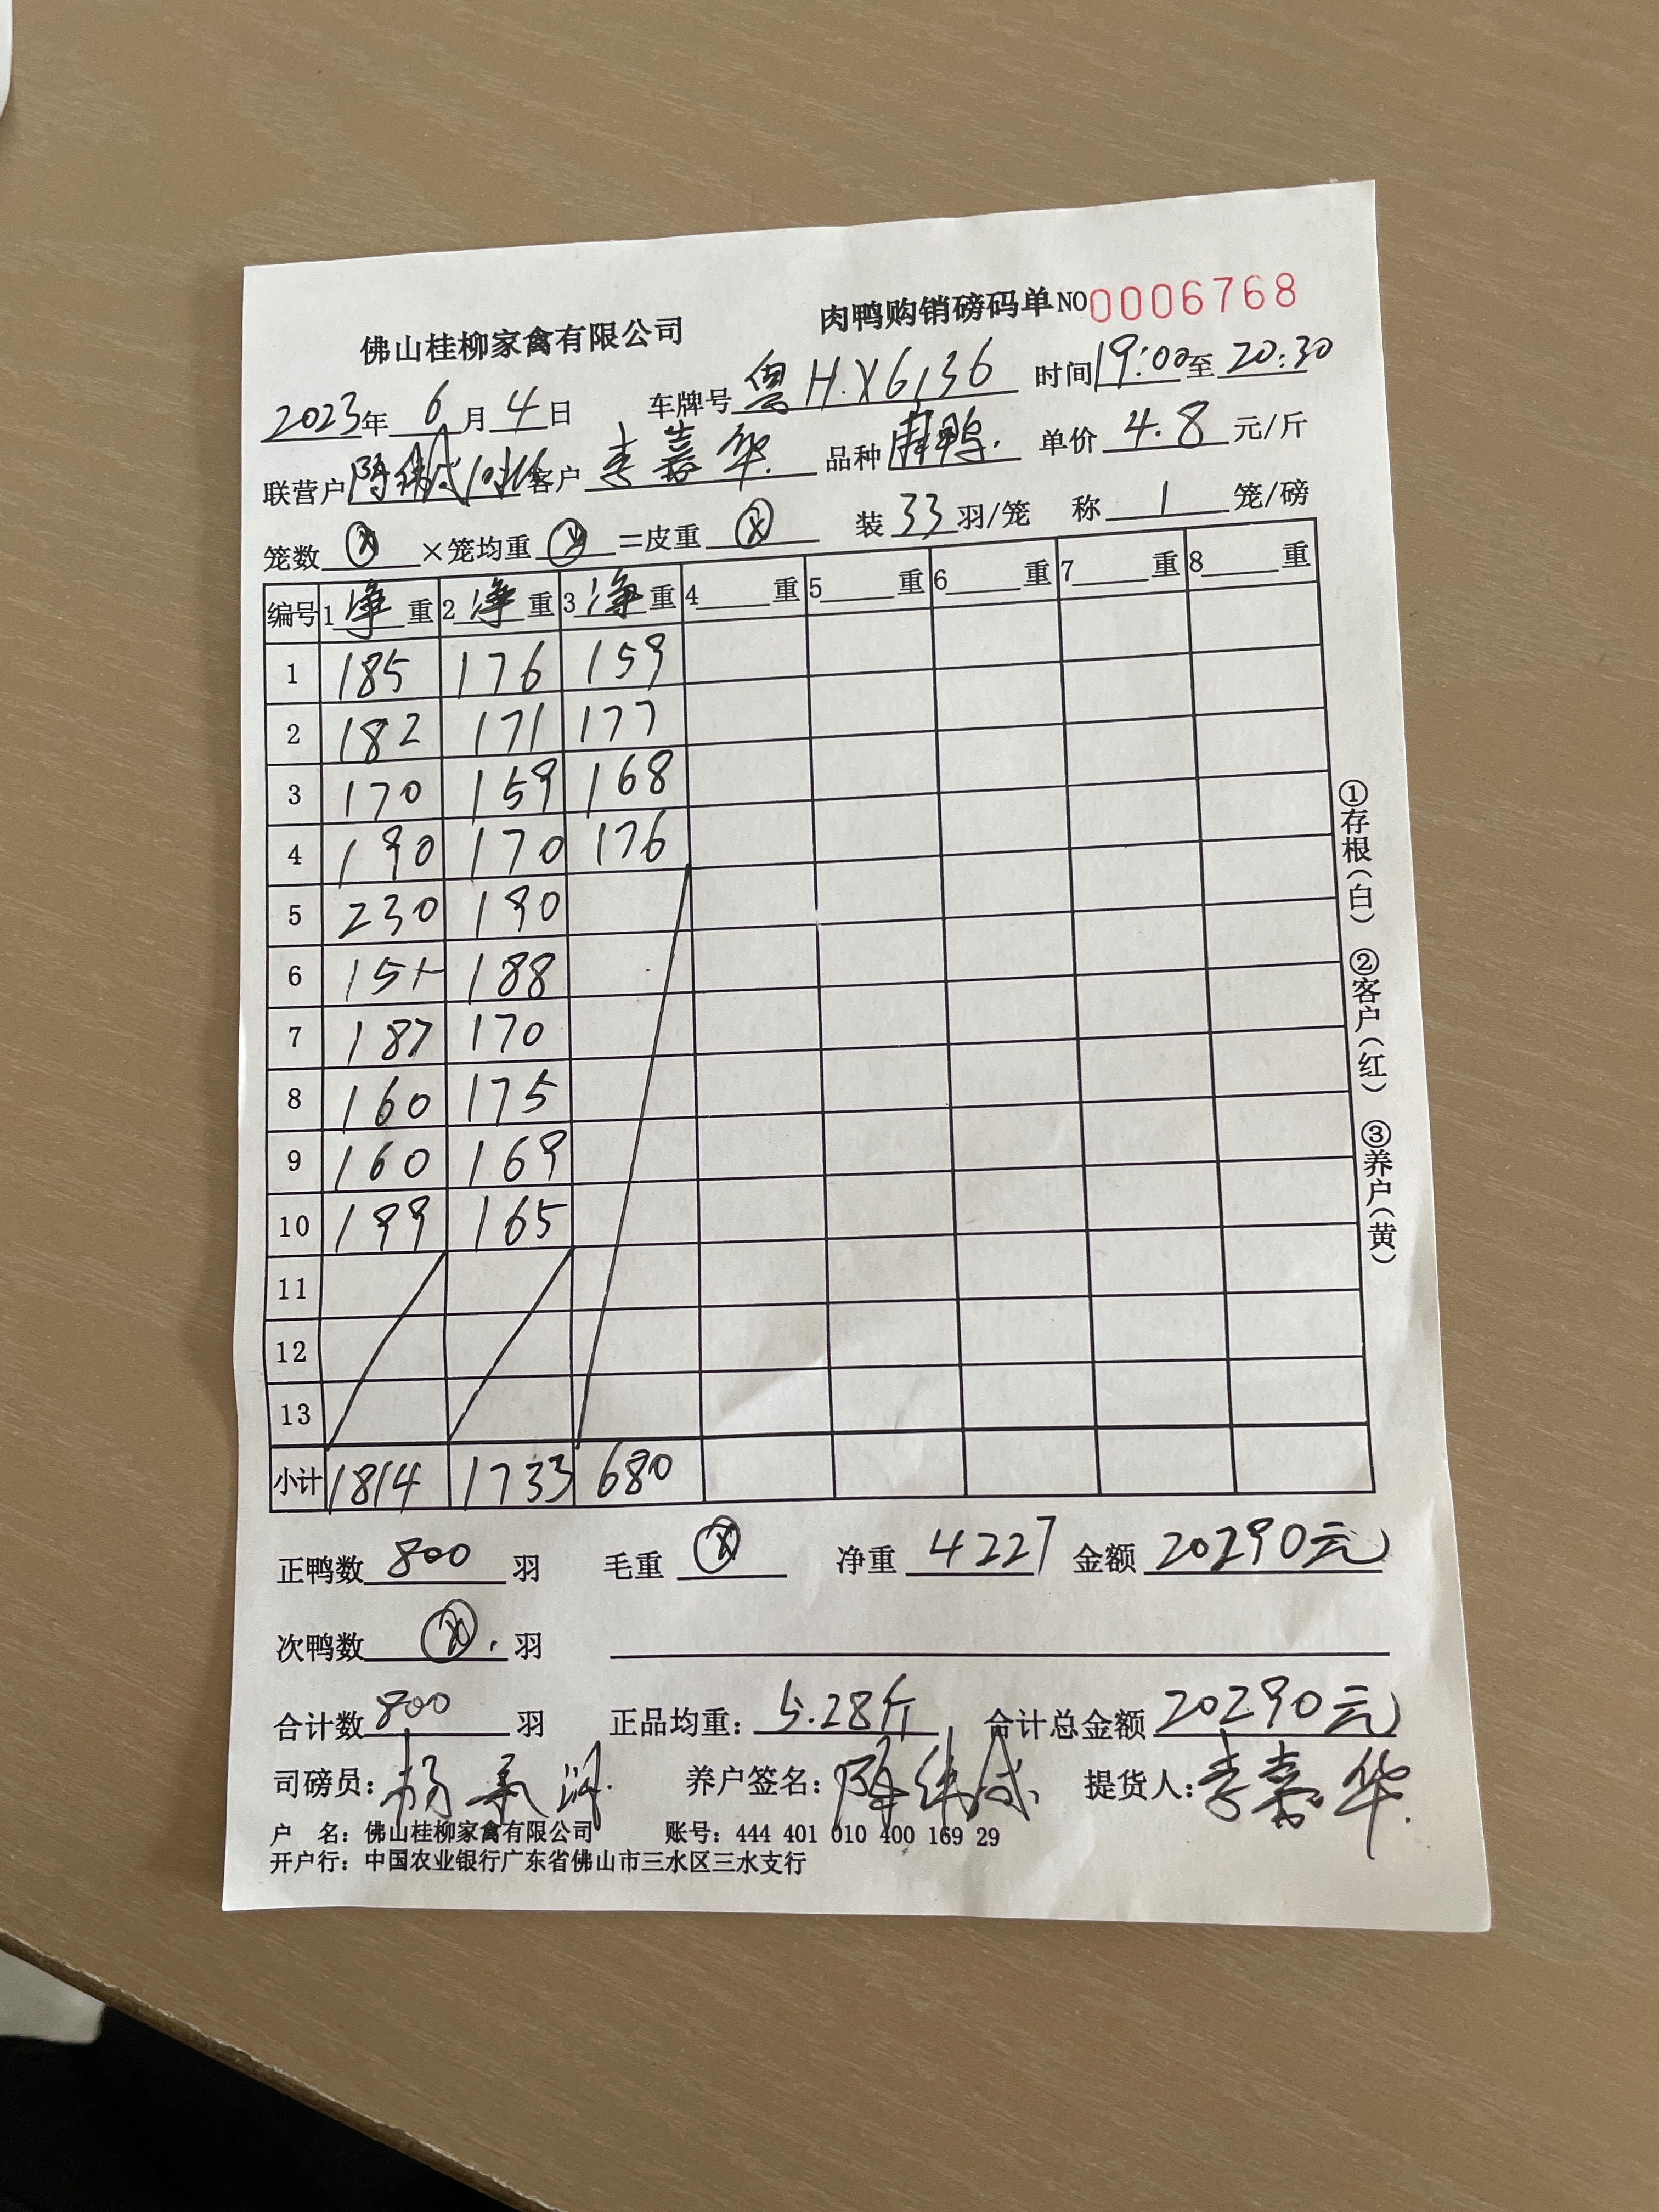 佛山桂柳家禽有限公司 肉鸭购销磅码单 NO 0006768
2023年 6月 4日 车牌号 粤H.X6136 时间 19:00 至 20:30
联营户 客户 李嘉华 品种 鸭 单价 4.8 元/斤
笼数 ×笼均重 =皮重 装 33 羽/笼 称 1 笼/磅
编号 1 净 重 2 净 重 3 净 重 4 重 5 重 6 重 7 重 8 重
1 185 176 159
2 182 171 177
3 170 159 168
4 190 170 176
5 230 190
6 151 188
7 187 170
8 160 175
9 160 169
10 199 165
11
12
13
小计 1814 1733 680
正鸭数 800 羽 毛重 净重 4227 金额 20290元
次鸭数 羽
合计数 800 羽 正品均重: 5.28斤 合计总金额 20290元
司磅员: 杨 养户签名: 陈伟成 提货人: 李嘉华
户 名: 佛山桂柳家禽有限公司 账号: 444 401 010 400 169 29
开户行: 中国农业银行广东省佛山市三水区三水支行
①存根(白) ②客户(红) ③养户(黄)